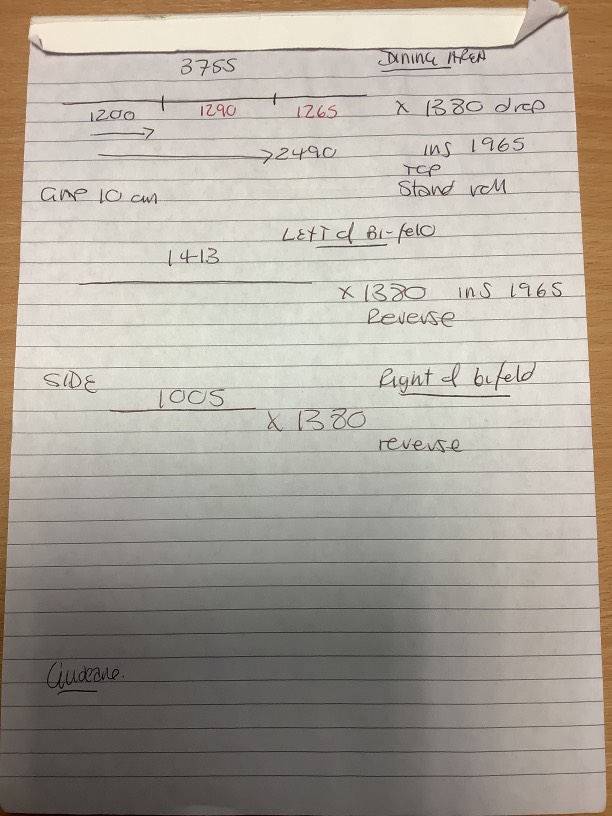 3755
DINING AREA
1200 1290 1265
X 1380 drop
2490
ins 1965
TOP
Stand roll
10 cm
LEFT of Bi-fold
1413
X 1380 ins 1965
Reverse
SIDE
Right of bifold
1005
X 1380
reverse